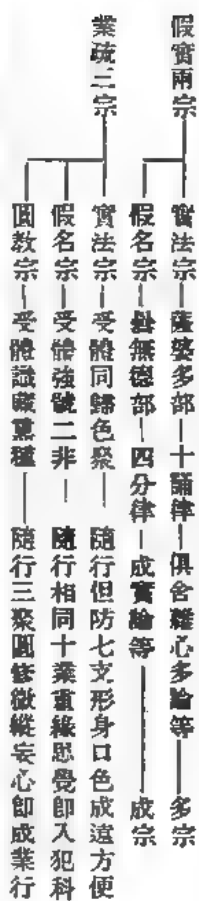 假實兩宗
實法宗—薩婆多部—十誦律—俱舍雜心多論等—多宗
假名宗—曇無德部—四分律—成實論等—成宗
業疏三宗
實法宗—受體同歸色聚—隨行但防七支形身口色成遠方便
假名宗—受體強號二非—隨行相同十業重緣思覺即入犯科
圓教宗—受體識藏熏種—隨行三聚圓修微縱妄心即成業行